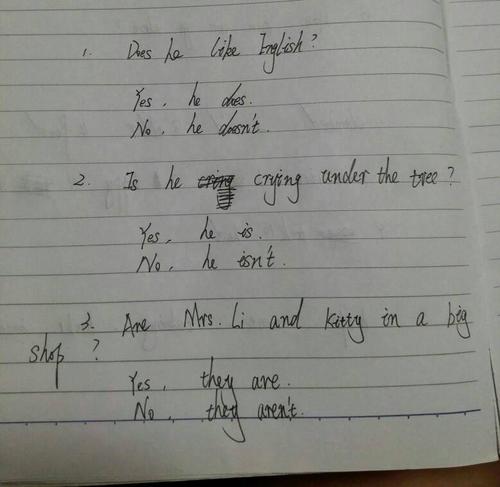 1. Does he like English?
Yes, he does.
No, he doesn't.
2. Is he crying under the tree?
Yes, he is.
No, he isn't.
3. Are Mrs. Li and Kitty in a big
shop?
Yes, they are.
No, they aren't.